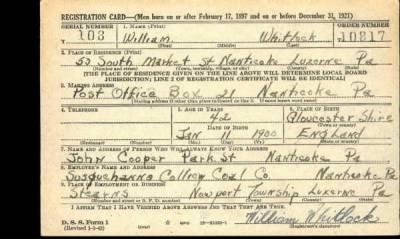 REGISTRATION CARD—(Men born on or after February 17, 1897 and on or before December 31, 1921)
SERIAL NUMBER 1. NAME (Print) ORDER NUMBER
U 103 William. Whitlock 10217
(First) (Middle) (Last)
2. PLACE OF RESIDENCE (Print)
53 South Market St Nanticoke Luzerne Pa
(Number and street) (Town, township, village, or city) (County) (State)
[THE PLACE OF RESIDENCE GIVEN ON THE LINE ABOVE WILL DETERMINE LOCAL BOARD
JURISDICTION; LINE 2 OF REGISTRATION CERTIFICATE WILL BE IDENTICAL]
3. MAILING ADDRESS
Post Office Box 21 Nanticoke Pa
[Mailing address if other than place indicated on line 2. If same insert word same]
4. TELEPHONE 5. AGE IN YEARS 6. PLACE OF BIRTH
42 Gloucester Shire
DATE OF BIRTH (Town or county)
Jan 11 1900 England
(Exchange) (Number) (Mo.) (Day) (Yr.) (State or country)
7. NAME AND ADDRESS OF PERSON WHO WILL ALWAYS KNOW YOUR ADDRESS
John Cooper Park St Nanticoke Pa
8. EMPLOYER'S NAME AND ADDRESS
Susquehanna Colliery Coal Co. Nanticoke Pa
9. PLACE OF EMPLOYMENT OR BUSINESS
Stearns Newport Township Luzerne Pa
(Number and street or R. F. D. number) (Town) (County) (State)
I AFFIRM THAT I HAVE VERIFIED ABOVE ANSWERS AND THAT THEY ARE TRUE.
D. S. S. Form 1 William Whitlock
(Revised 1-1-42) (over) (Registrant's signature)